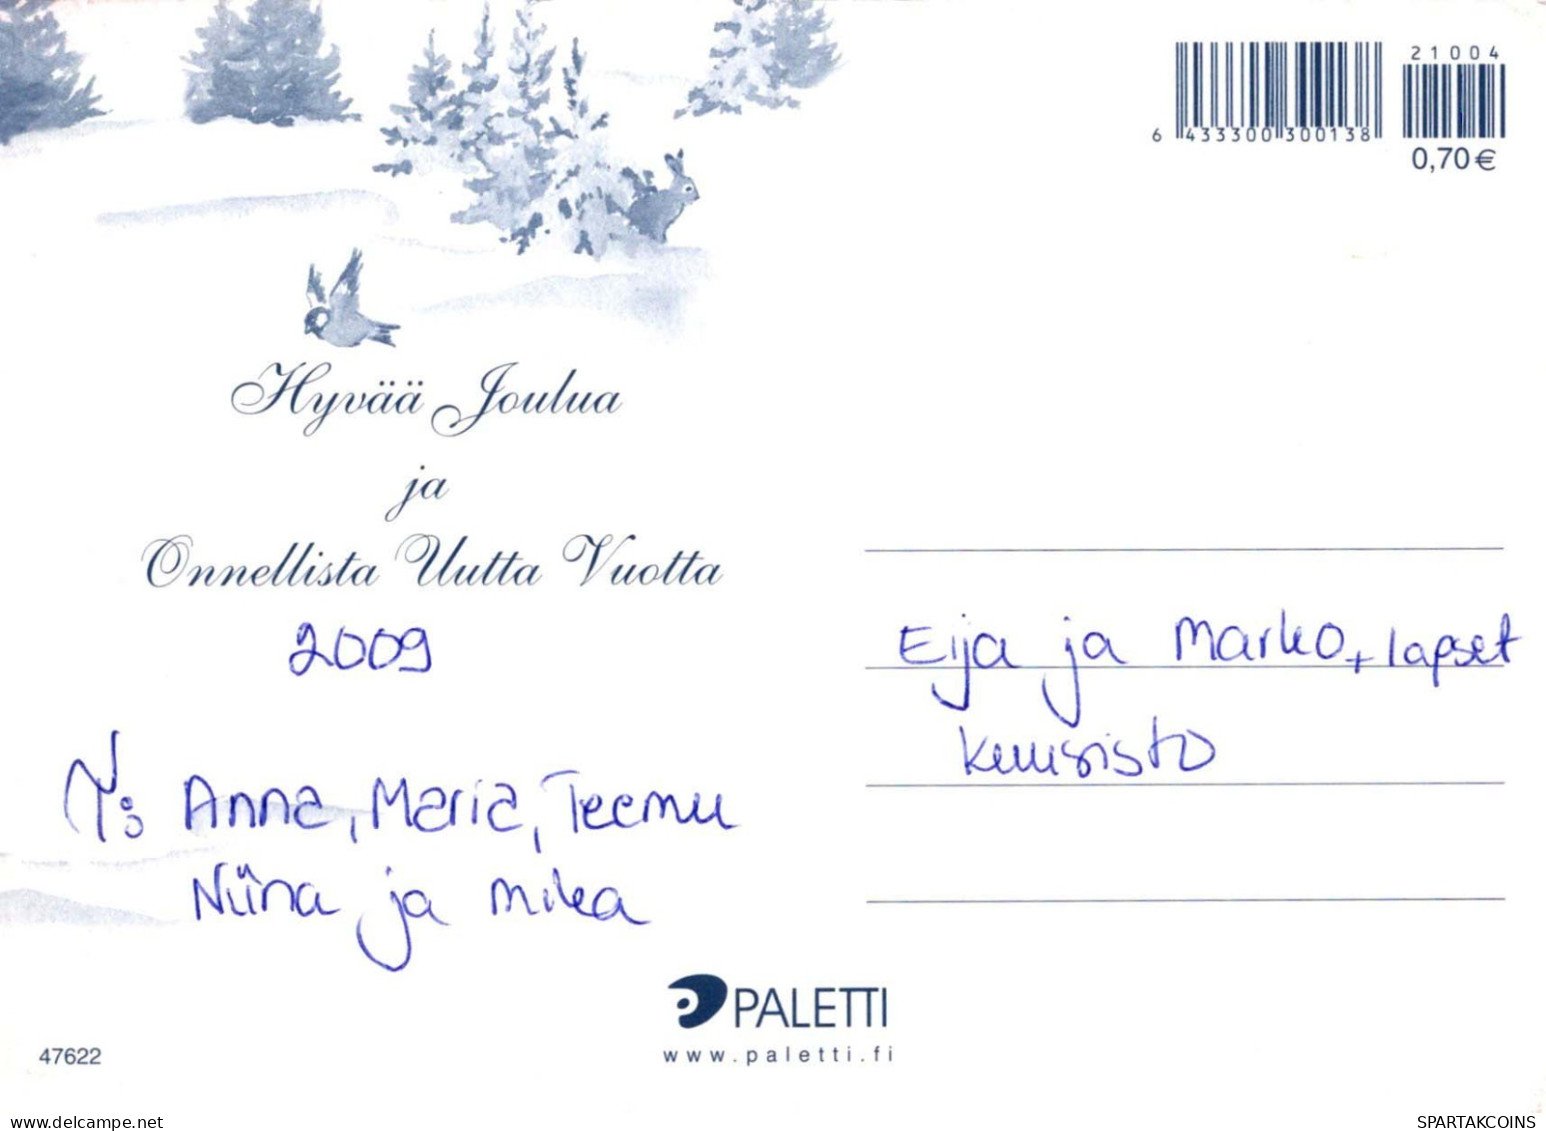 21004
6 433300 300138
0,70 €
Hyvää Joulua
ja
Onnellista Uutta Vuotta
2009
Eija ja Marko + lapset
T: Anna, Maria, Teemu
Niina ja Mika
PALETTI
www.paletti.fi
47622
https://www.delcampe.net
SPARTAKCOINS